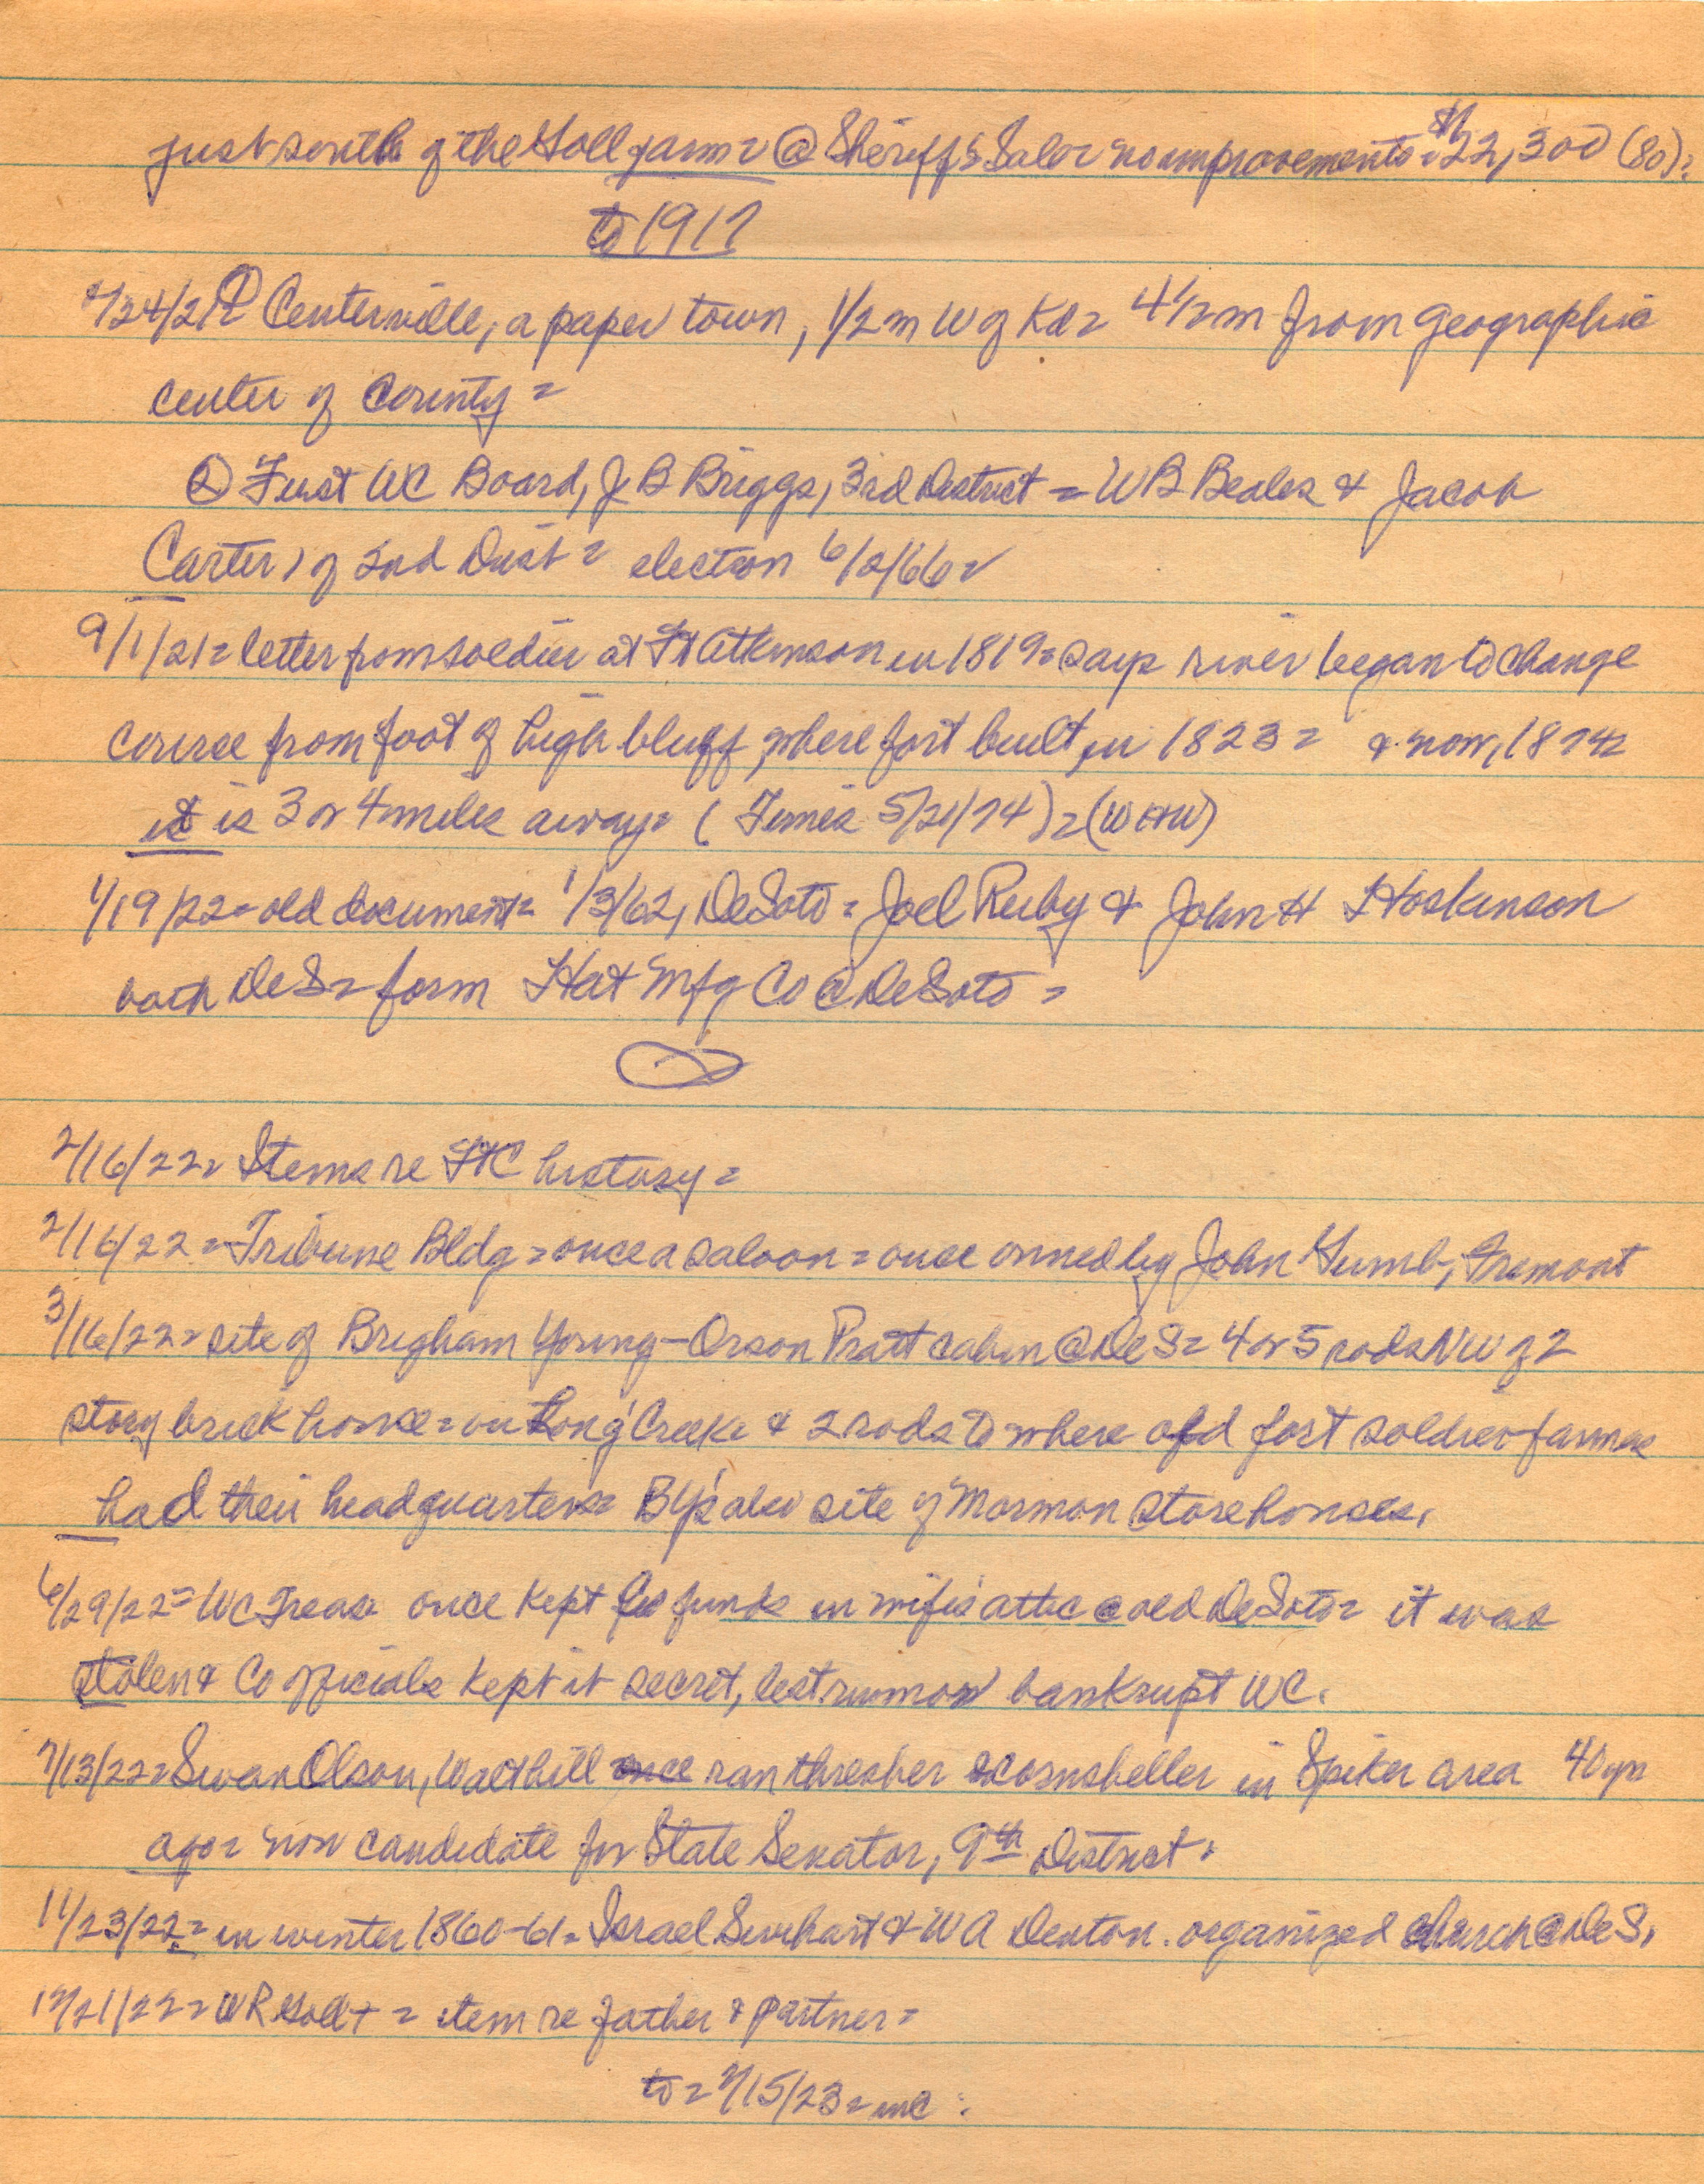 just south of the Holl farm = @ Sheriff's Sale = no improvements = $22,300 (80) =
to 1917
/24/21 = ① Centerville, a paper town, 1/2 m W of Kd = 4 1/2 m from geographic
center of County =
② First WC Board, J B Briggs, 3rd District = W B Beales & Jacob
Carter, of 2nd Dist = election 6/2/66 =
9/1/21 = letter from soldier at Ft Atkinson in 1819 = says river began to change
course from foot of high bluff, where fort built, in 1823 = & now, 1874 =
it is 3 or 4 miles away = ( Times 5/21/74) =
1/19/22 = old document = 1/3/62, DeSoto = Joel Ruby & John H Hoskinson
both DeS = form Hat Mfg Co @ DeSoto =
2/16/22 = Items re FtC history =
2/16/22 = Tribune Bldg = once a saloon = once owned by John Gumb, Fremont
3/16/22 = site of Brigham Young - Orson Pratt cabin @ DeS = 4 or 5 rods NW of 2
story brick house = on Long Creek & 2 rods to where old fort soldier farmers
had their headquarters = BY's also site of Mormon storehouses.
6/29/22 = WC Treas once kept Co funds in wife's attic @ old DeSoto = it was
stolen & Co officials kept it secret, lest rumor bankrupt WC.
7/13/22 = Swan Olson, Walthill once ran thresher & cornsheller in Spiker area 40 yrs
ago = now candidate for State Senator, 9th District.
11/23/22 = in winter 1860-61 = Israel Swihart & W A Denton organized church @ DeS.
12/21/22 = W R Goll + = item re father & partner =
to = 7/15/23 = inc.